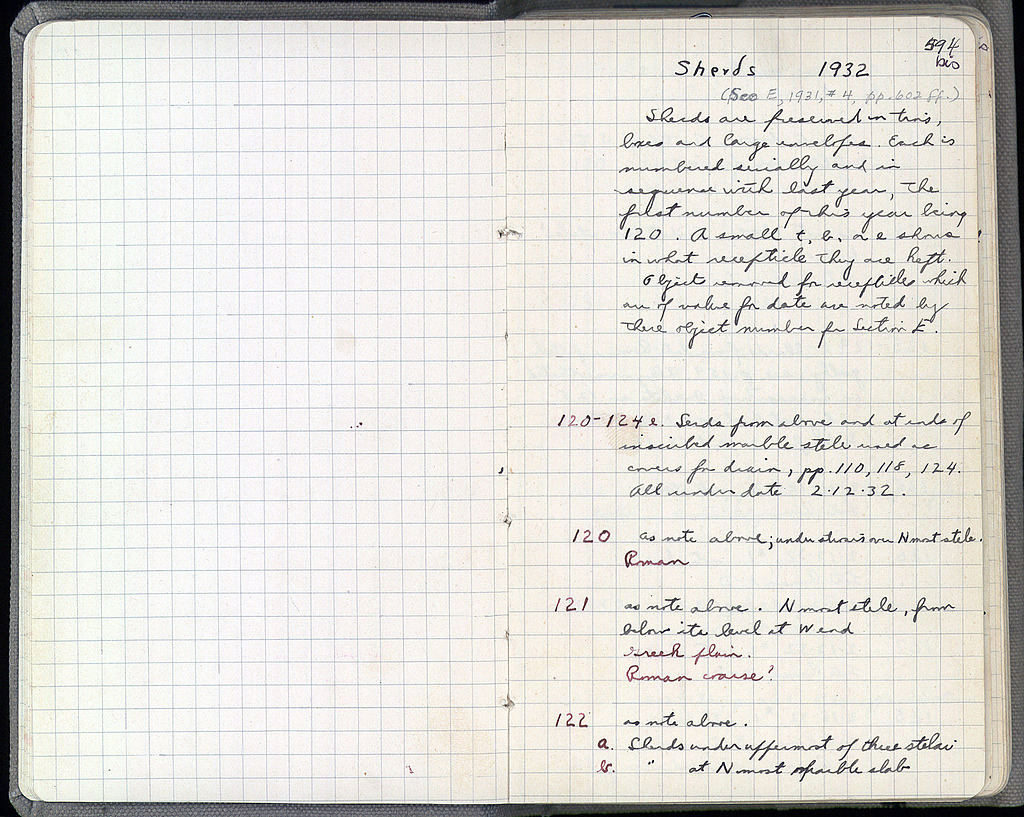 594
bis
Sherds 1932
(See E, 1931, #4, pp. 602 ff.)
Sherds are preserved in tins,
boxes and large envelopes. Each is
numbered serially and in
sequence with last year, the
first number of this year being
120. A small t, b, or e shows
in what recepticle they are kept.
Objects removed for recepticles which
are of value for date are noted by
there object number for Section E.
120-124 e. Serds from above and at ends of
inscribed marble stele used as
covers for drain, pp. 110, 118, 124.
All under date 2.12.32.
120 as note above; under stones over N most stele.
Roman
121 as note above. N most stele, from
below its level at W end
Greek plain.
Roman coarse?
122 as note above.
a. Sherds under uppermost of three stelai
b. " at N most marble slab